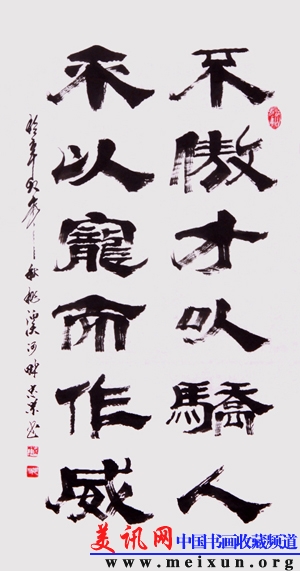 不傲才以驕人
不以寵而作威
美讯网 中国书画收藏频道
www.meixun.org